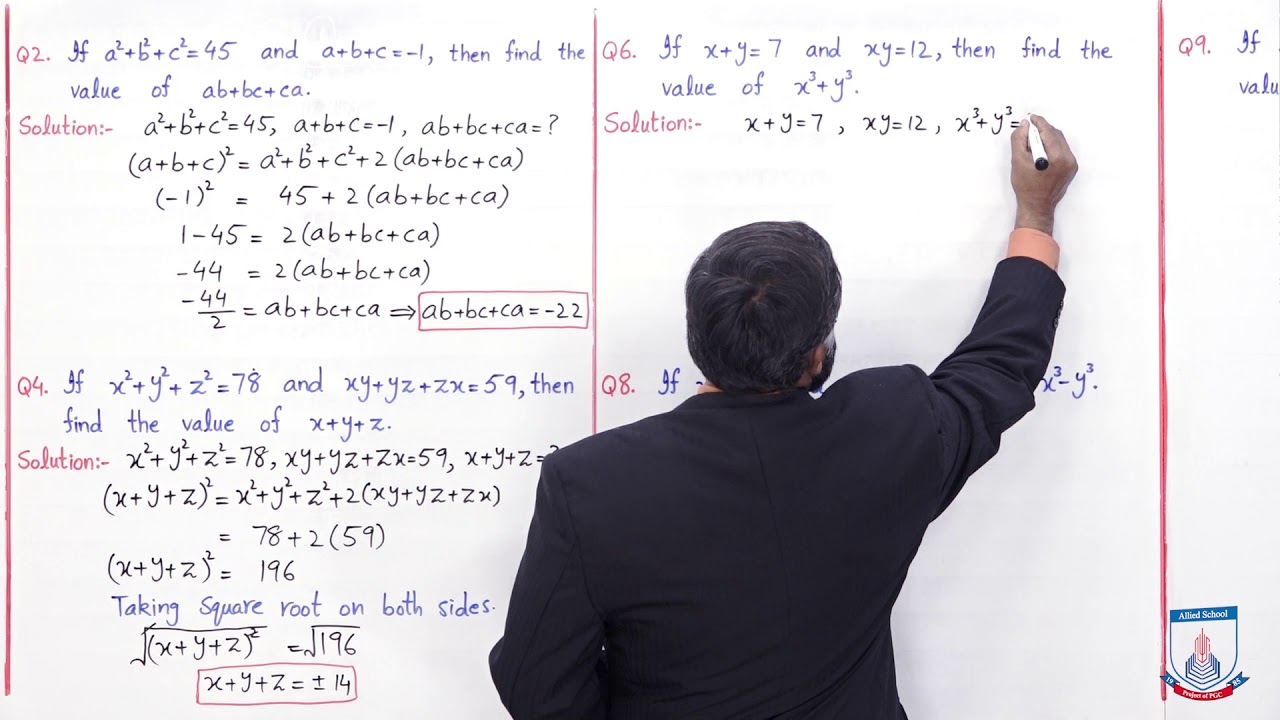 Q2. If a²+b²+c²=45 and a+b+c=-1, then find the
value of ab+bc+ca.
Solution:- a²+b²+c²=45, a+b+c=-1, ab+bc+ca=?
(a+b+c)²=a²+b²+c²+2(ab+bc+ca)
(-1)² = 45+2(ab+bc+ca)
1-45= 2(ab+bc+ca)
-44 = 2(ab+bc+ca)
-44/2 = ab+bc+ca ⇒ ab+bc+ca=-22
Q4. If x²+y²+z²=78 and xy+yz+zx=59, then
find the value of x+y+z.
Solution:- x²+y²+z²=78, xy+yz+zx=59, x+y+z=?
(x+y+z)²=x²+y²+z²+2(xy+yz+zx)
= 78+2(59)
(x+y+z)²= 196
Taking Square root on both sides.
√(x+y+z)² =√196
x+y+z=±14
Q6. If x+y=7 and xy=12, then find the
value of x³+y³.
Solution:- x+y=7, xy=12, x³+y³=
Q8. If x³-y³.
Q9. If
Allied School
19 85
Project of PGC